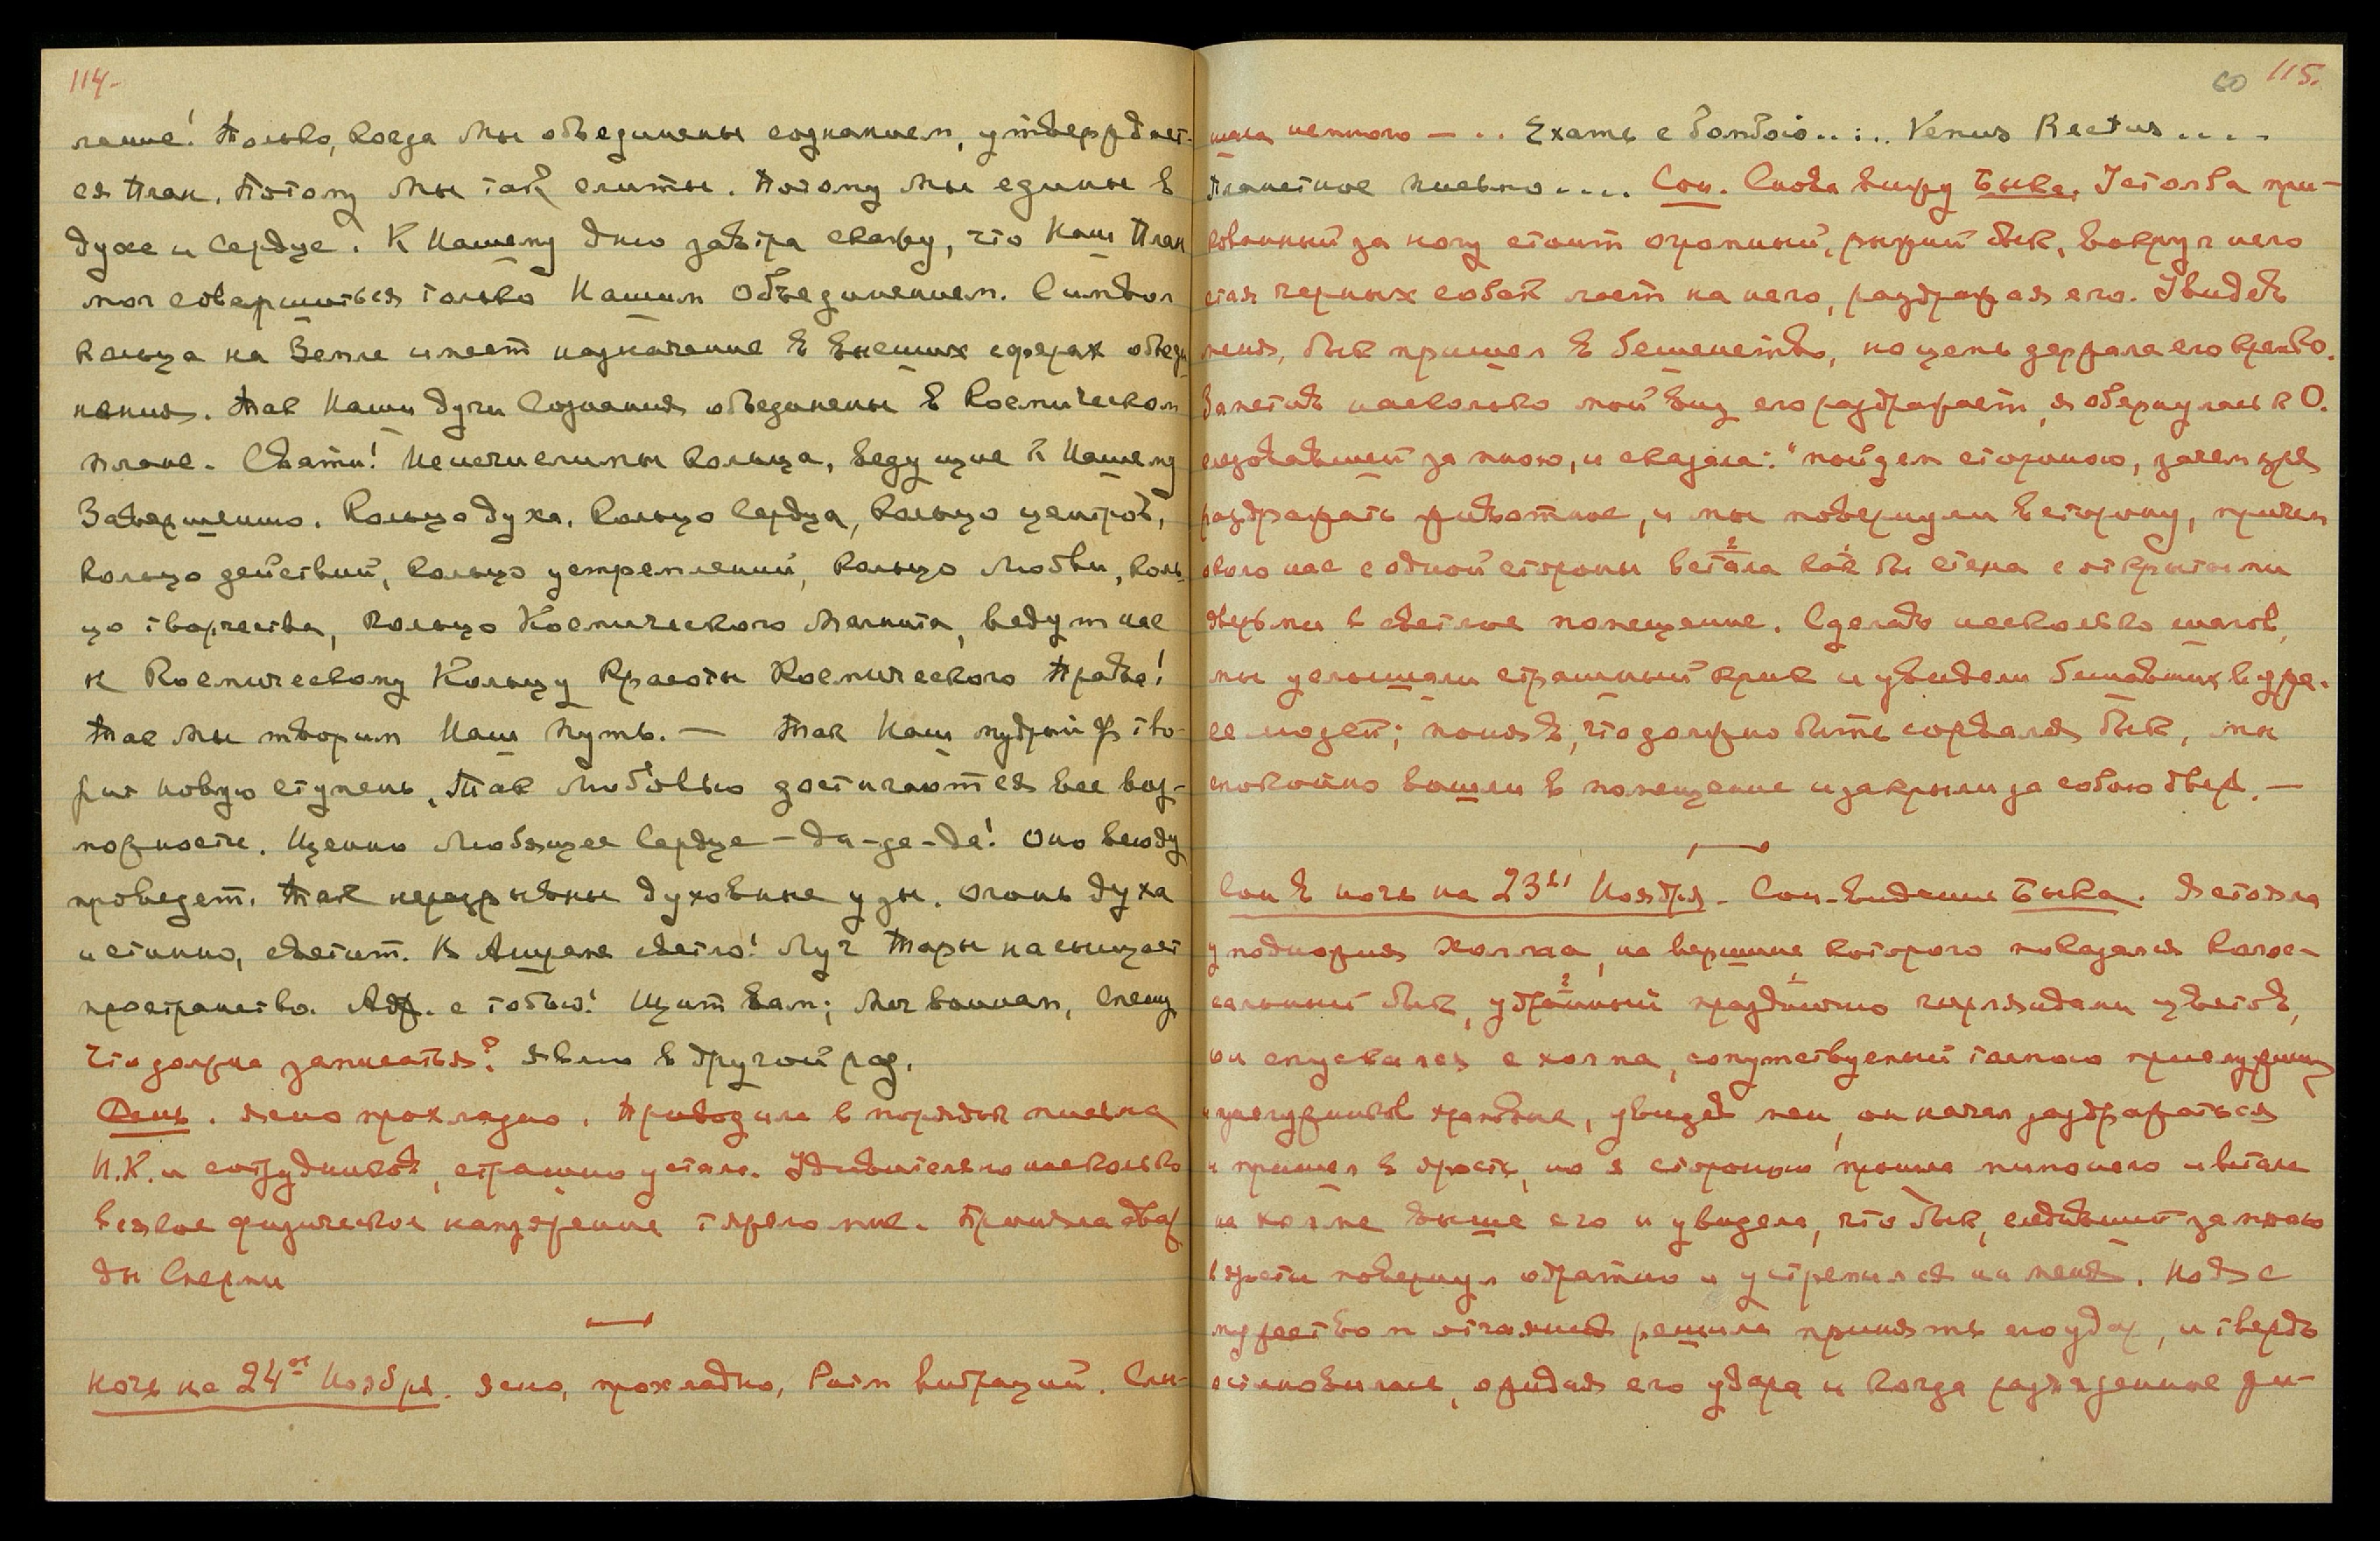 114-
ление! Только, когда Мы объединены сознанием, утверждает-
ся План. Потому Мы так слиты. Потому Мы едины в
духе и Сердце. К Нашему дню завтра скажу, что Наш План
мог совершиться только Нашим Объединением. Символ
кольца на Земле имеет назначение в высших сферах объеди
нения. Так Наши духи Сознания объединены в Космическом
плане. Свати! Неисчислимы кольца, ведущие к Нашему
Завершению. Кольцо духа, Кольцо Сердца, кольцо центров,
кольцо действий, кольцо устремлений, кольцо Любви, коль
цо творчества, кольцо Космического Магнита, ведут нас
к Космическому Кольцу Красоты Космического Права!
Так Мы творим Наш Путь. — Так Наш мудрый тво-
рит новую ступень. Так Любовью достигаются все воз-
можности. Ценно Любящее Сердце — да-да-да! Оно всюду
проведет. Так неразрывны духовные узы. Огонь духа
истинно, светит. К светло! Луч Тары насыщает
пространство. с тобою! Щит вам; Меч воинам, Спешу
Что должна записать? явлю в другой раз.
День. Ясно прохладно. Приводила в порядок письма
Н.К. и сотрудников, страшно устала. Удивительно насколько
всякое физическое напряжение тяжело мне. Приняла дваж
ды Спермин
Ночь на 24ое Ноября. Ясно, прохладно, Ритм вибраций. Слы-
60 115.
шала немного — .. Ехать с бомбою..:.. Venus Rectus....
Планетное письмо.... Сон. Снова вижу Быка. У столба при-
кованный за ногу стоит огромный, рыжий бык, вокруг него
стая черных собак лает на него, раздражая его. Увидев
меня, бык пришел в бешенство, но цепь держала его крепко.
Заметив насколько мой вид его раздражает, я обернулась к О.
следовавшей за мною, и сказала: "пойдем стороною, зачем зря
раздражать животное, и мы повернули в сторону, причем
около нас с одной стороны встала как бы стена с открытыми
дверьми в светлое помещение. Сделав несколько шагов,
мы услышали страшный крик и увидели бежавших в ужа-
се людей; поняв, что должно быть сорвался бык, мы
спокойно вошли в помещение и закрыли за собою дверь. —
Сон в ночь на 23ье Ноября. Сон-видение Быка. Я стояла
у подножия холма, на вершине которого показался колос-
сальный бык, убранный празднично гирляндами цветов,
он спускался с холма, сопутствуемый толпою прислужниц
и прислужников храмовых, увидев меня, он начал раздражаться
и пришел в ярость, но я стороною прошла мимо него и встала
на холме выше его и увидела, что бык, следивший за мною
в ярости повернул обратно и устремился на меня. Но я с
мужеством отчаяния решила принять его удар, и твердо
остановилась, ожидая его удара и когда разъяренное жи-